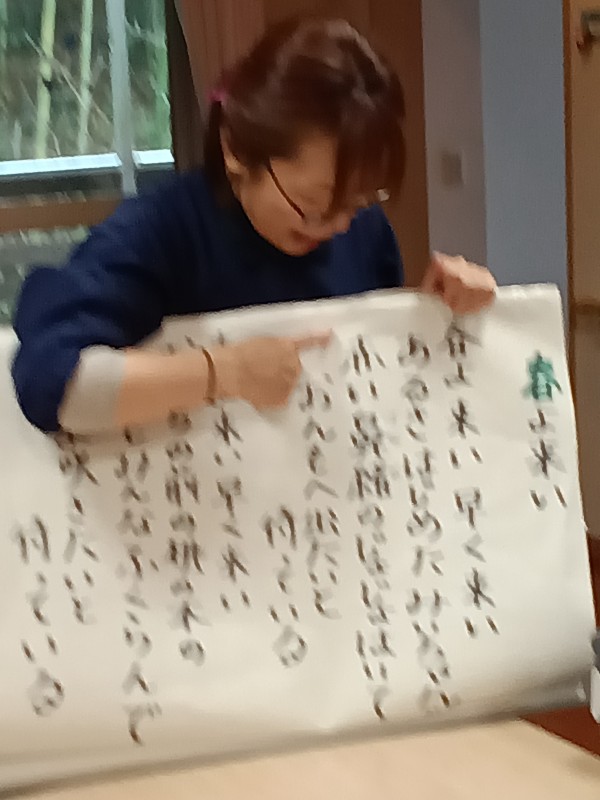 春よ来い
春よ来い 早く来い
あるきはじめた みいちゃんが
赤い鼻緒のじょじょはいて
おんもへ出たいと
待っている
来い 早く来い
前の桃の木の
みんなふくらんで
咲きたいと
待っている